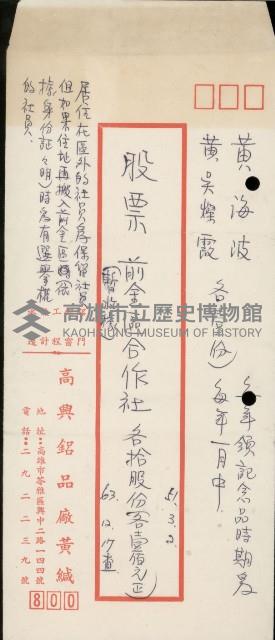 黃海波
黃吳燦霞
各
每年領記念品時期是
每年一月中
股票
前金區合作社
各拾股份(各壹佰元正)
51.3.2
63.12.17查
居住在區外的社員停保留社員
但如果住址再搬入前金區時
據身份証々明)時為有選舉權
的社員
高雄市立歷史博物館
KAOHSIUNG MUSEUM OF HISTORY
工
設計程富門
高興鋁品廠黃緘
地址：高雄市苓雅區興中二路一四四號
電話：二九二二三九號
800